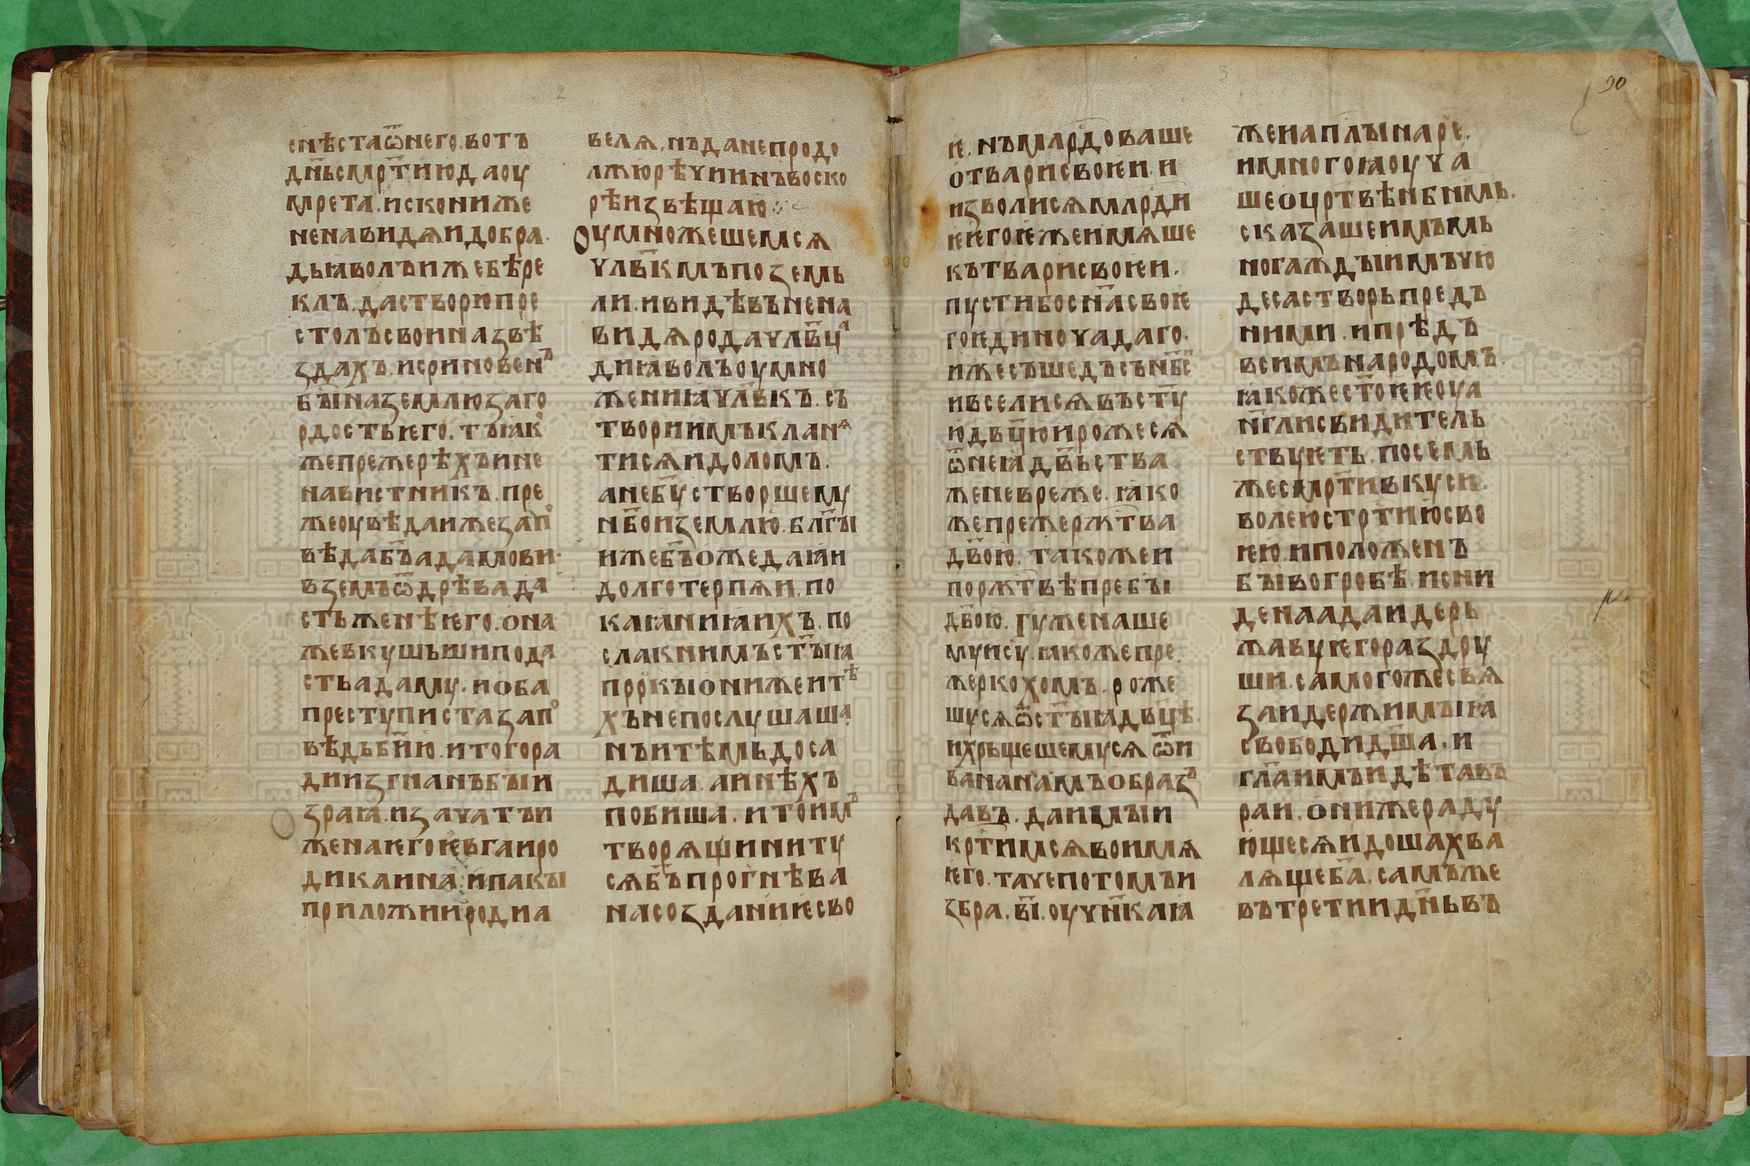 снѣстаѿнего.вотъ
дн҃ьсмр҃тиюдаоу
мрета.искониже
ненавидѧидобра.
дьꙗволъижебѣре
клъ.дастворюпре
столъсвоиназвѣ
здахъ.исриновенъ
бꙑназемлюзаго
рдостьѥго.тъꙗкⷪ
жепрежерѣхъине
навистникъ.пре
жеоувѣдаижезапⷪ
вѣдаб҃ъадамови.
вземъѿдрѣвада
стьженѣѥго.она
жевкушьшипода
стьадаму.иоба
преступистазапⷪ
вѣдьби҃ю.итогора
диизгнанъбꙑи
зраꙗ.изачатъи
женаѥгоѥвгаиро
дикаина.ипакꙑ
приложиродиа
велѧ.нъданепродо
лжюрѣчиинъвоско
рѣизвѣщаю
Оумножешемсѧ
члв҃кмъпоземь
ли.ивидѣвънена
видѧродачлв҃чⷭа
диꙗволъоумно
жениꙗчлв҃къ.съ
твориимъкланѧ
тисѧидоломъ.
анеб҃устворшему
нб҃оиземлю.блг҃ꙑ
ижеб҃ъожедаꙗи
долготерпѧи.по
каꙗниꙗихъ.по
слакнимъст҃ꙑꙗ
прр҃кꙑонижеитѣ
хънепослушаша
нъитѣмьдоса
диша.аинѣхъ
побиша.итоимъ
творѧщиниту
сѧб҃ъпрогнѣва
насозданиѥсво
ѥ.нъмлрдоваше
отварисвоѥи.и
изволисѧмлрди
ѥѥгоѥжеимѧше
кътварисвоѥи.
пустибосн҃асвоѥ
гоѥдиночадаго.
ижесъшедъсънб҃сѣ
ивселисѧвъст҃у
юдв҃цюиродисѧ
ѿнеꙗдв҃ьства
женевреже.ꙗко
жепрежержт҃ва
дв҃ою.такожеи
поржт҃вѣпребꙑ
дв҃ою.Гуженаше
муи҃су.ꙗкожепре
жеркохомъ.роже
шусѧѿст҃ꙑꙗдв҃цѣ
ихрьщешемусѧѿи
ванананамъобразъ
давъ.даимꙑи
кр҃тимсѧвоимѧ
ѥго.тачепотомъи
збра.в҃і.оучн҃каꙗ
жеиап҃лꙑнаре.
имногоꙗоуча
шеоцр҃твѣнб҃мь.
сказашеимъмь
ногаждꙑимъчю
десастворьпредъ
ними.ипрѣдъ
всимънародомъ
ꙗкожест҃оѥѥоуа
нг҃лисвидитель
ствуѥть.посемь
жесмр҃тивкуси
волеюстр҃тиюсво
ѥю.иположенъ
бꙑвогробѣ.исни
денаадаидерь
жавуѥгораздру
ши.самогожесвѧ
заидержимꙑꙗ
свободидш҃а.и
гл҃аимъидѣтавъ
раи.онижераду
ющесѧидошахва
лѧщеб҃а.самъже
вътретиидн҃ьвъ
90